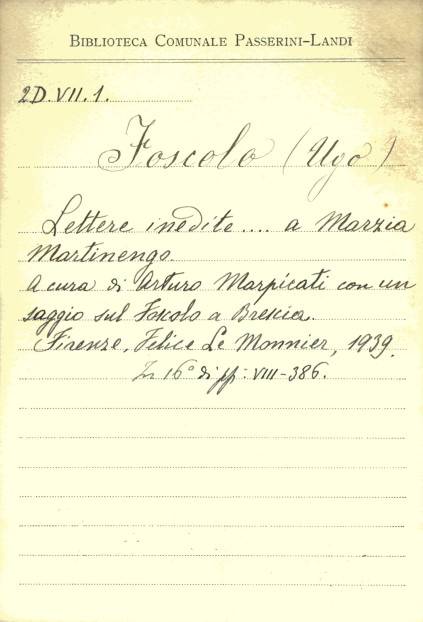 BIBLIOTECA COMUNALE PASSERINI-LANDI
2D.VII.1.
Foscolo (Ugo)
Lettere inedite.... a Marzia
Martinengo.
A cura di Arturo Marpicati con un
saggio sul Foscolo a Brescia.
Firenze, Felice Le Monnier, 1939.
In 16° di pp. VIII-386.